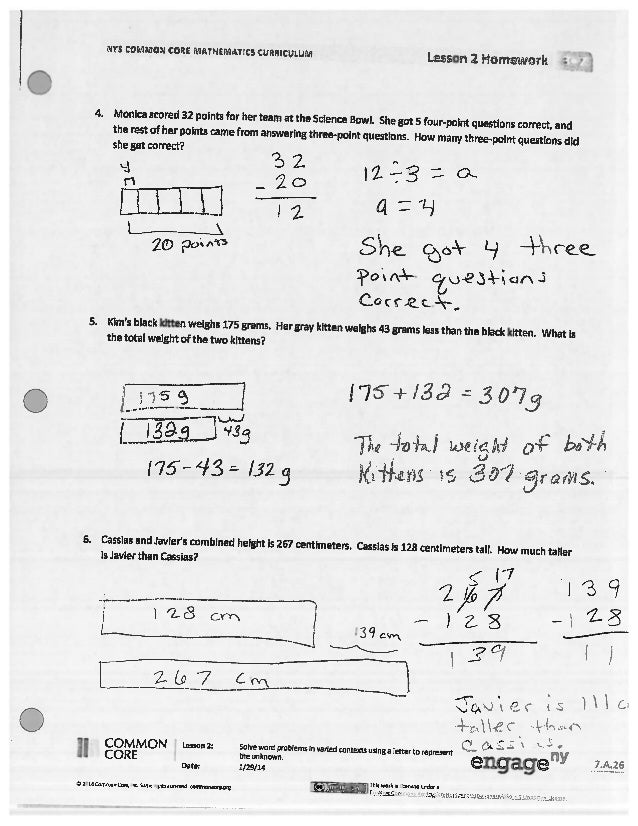 NYS COMMON CORE MATHEMATICS CURRICULUM
Lesson 2 Homework
4. Monica scored 32 points for her team at the Science Bowl. She got 5 four-point questions correct, and
the rest of her points came from answering three-point questions. How many three-point questions did
she get correct?
4
20 points
32
- 20
12
12 ÷ 3 = a
a = 4
She got 4 three
point questions
correct.
5. Kim's black kitten weighs 175 grams. Her gray kitten weighs 43 grams less than the black kitten. What is
the total weight of the two kittens?
175 g
132g 43g
175 - 43 = 132 g
175 + 132 = 307g
The total weight of both
Kittens is 307 grams.
6. Cassias and Javier's combined height is 267 centimeters. Cassias is 128 centimeters tall. How much taller
is Javier than Cassias?
128 cm
139 cm
267 cm
5 17
267
- 128
139
139
- 128
11
Javier is 11 c
taller than
Cassius.
COMMON
CORE
Lesson 2: Solve word problems in varied contexts using a letter to represent
the unknown.
Date: 1/29/14
engage ny
7.A.26
© 2014 Common Core, Inc. Some rights reserved. commoncore.org
This work is licensed under a